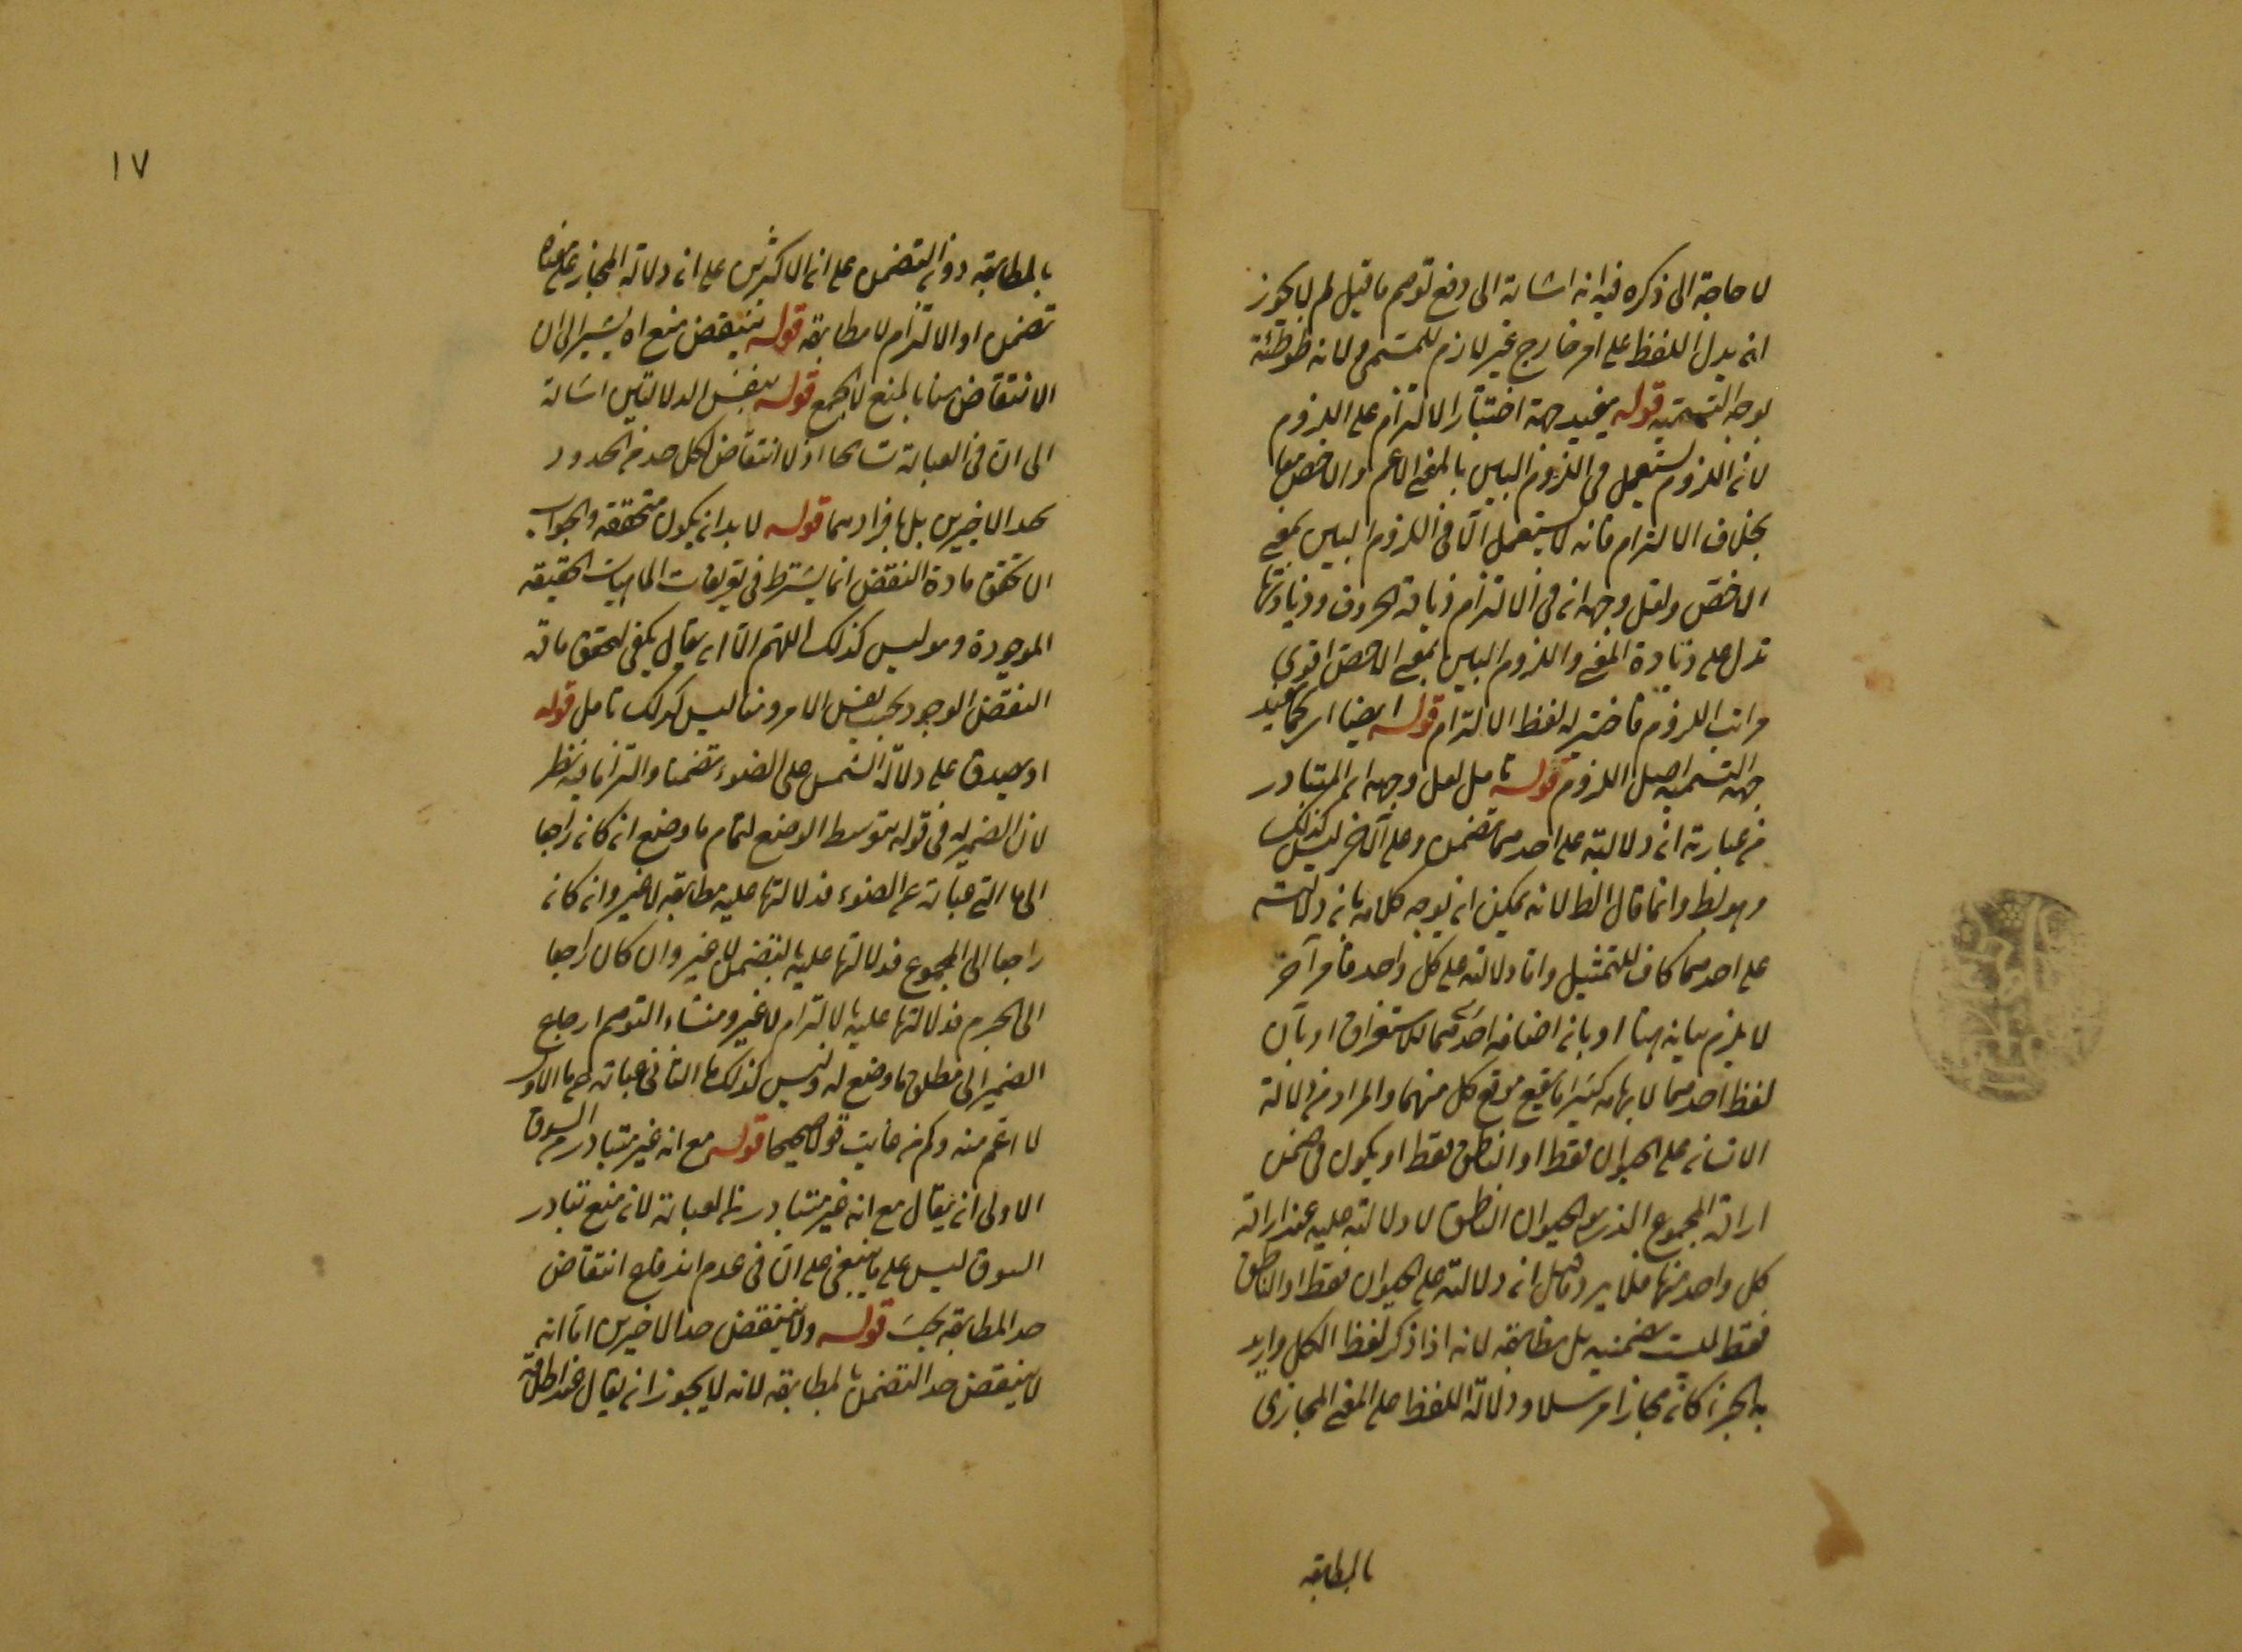 لا حاجة الى ذكره فيه انه اشارة الى دفع توهم ما قيل لم لا يجوز
ان يدل اللفظ على امر خارج غير لازم للمسمى ولانه طوطئة
لوجه التسمية قوله يفيد جهة اختيار الالتزام على اللزوم
لان اللزوم يستعمل فى اللزوم البين بالمعنى الاعم والاخص معا
بخلاف الالتزام فانه لا يستعمل الا فى اللزوم البين بمعنى
الاخص ولعل وجهه ان فى الالتزام زيادة الحروف وزيادتها
تدل على زيادة المعنى واللزوم البين بمعنى الاخص اقوى
مراتب اللزوم فاختير له لفظ الالتزام قوله ايضا اى كما يفيد
جهة التسمية اصل اللزوم قوله تأمل لعل وجهه ان المتبادر
من عبارته ان دلالته على احدهما تضمن وعلى الآخر ليس كذلك
وهو بط وانما قال الط لانه يمكن ان يوجه كلامه بان دلالته
على احدهما كاف للتمثيل واما دلالته على كل واحد فامر آخر
لا يلزم بيانه هنا او بان اضافة احدهما للاستغراق او بان
لفظ احدهما لابهامه كثيرا ما يقع موقع كل منهما والمراد من دلالة
الانسان على الحيوان فقط او الناطق فقط او يكون فى ضمن
ارادة المجموع الذى هو الحيوان الناطق لا دلالته عليه عند ارادة
كل واحد منهما فلا يرد ما قيل ان دلالته على الحيوان فقط او الناطق
فقط ليست تضمنية بل مطابقة لانه اذا ذكر لفظ الكل واريد
به الجزء كان مجازا مرسلا ودلالة اللفظ على المعنى المجازى
بالمطابقة
١٧
بالمطابقة دون التضمن على ان الاكثرين على ان دلالة المجاز على معناه
تضمن او الالتزام لا مطابقة قوله ينتقض منع اه يشير الى ان
الانتقاض هنا بالمنع لا الجمع قوله بنفس الدلالتين اشارة
الى ان فى العبارة تسامحا اذ لا انتقاض لكل حد من الحدود
بحد الاخيرين بل بافرادهما قوله لا بد ان يكون متحققة والجواب
ان تحقق مادة النقض انما يشترط فى تعريفات الماهيات الحقيقة
الموجودة وهو ليس كذلك اللهم الا ان يقال يكفى لتحقق مادة
النقض الوجود بحسب نفس الامر وهنا ليس كذلك تامل قوله
او يصدق على دلالة الشمس على الضوء تضمنا والتزاما فيه نظر
لان الضمير له فى قوله بتوسط الوضع لتمام ما وضع ان كان راجعا
الى ما التى عبارة عن الضوء فدلالتها عليه مطابقة لا غير وان كان
راجعا الى المجموع فدلالتها عليه بالتضمن لا غير وان كان راجعا
الى الجرم فدلالتها عليه بالالتزام لا غير ومنشاء التوهم ارجاع
الضمير الى مطلق ما وضع له وليس كذلك ما الثانى عبارة عن ما الاول
لا اعم منه وكم من عايب قولا صحيحا قوله مع انه غير متبادر من السوق
الاولى ان يقال مع انه غير متبادر من العبارة لان منع تبادر
السوق ليس على ما ينبغى على ان فى عدم اندفاع انتقاض
حد المطابقة بحسب قوله ولا ينتقض حد الاخيرين اما انه
لا ينتقض حد التضمن بالمطابقة لانه لا يجوز ان يقال عند اطلاقه